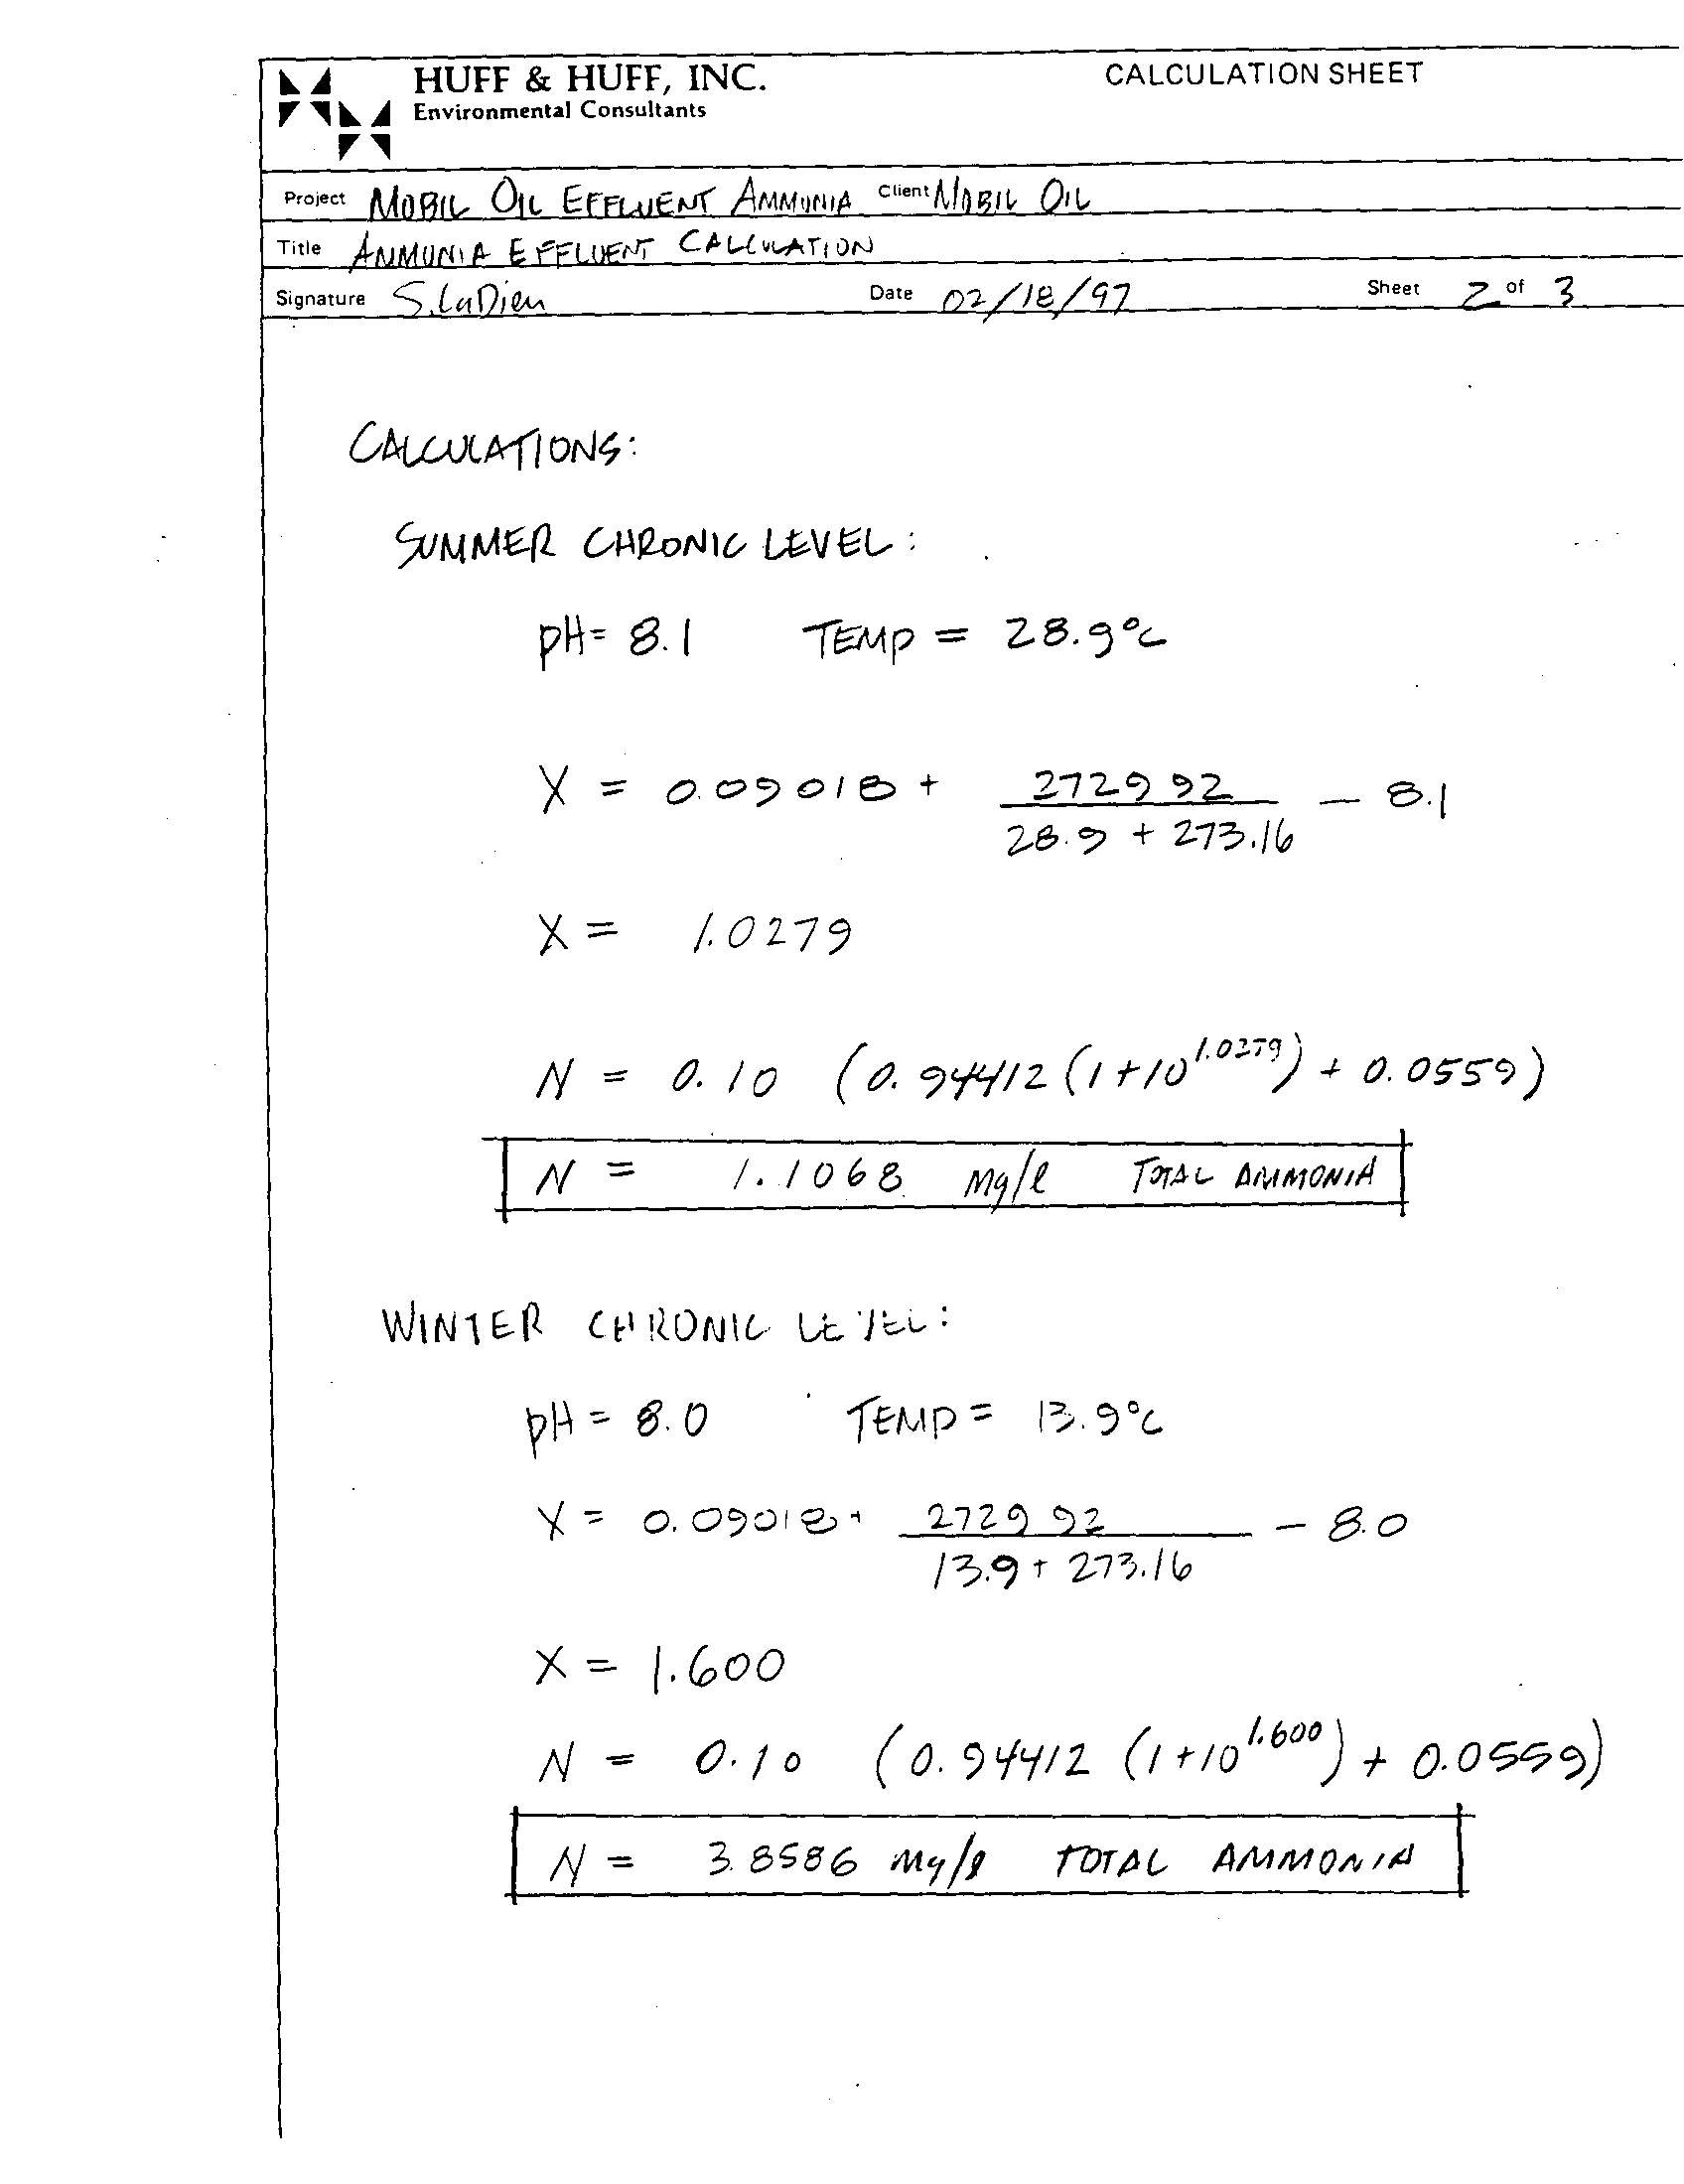 HUFF & HUFF, INC. CALCULATION SHEET
Environmental Consultants
Project MOBIL OIL EFFLUENT AMMONIA Client MOBIL OIL
Title AMMONIA EFFLUENT CALCULATION
Signature S. LaDieu Date 02/18/97 Sheet 2 of 3
CALCULATIONS:
SUMMER CHRONIC LEVEL:
pH = 8.1 TEMP = 28.9°C
X = 0.09018 + 2729.92 / 28.9 + 273.16 — 8.1
X = 1.0279
N = 0.10 (0.94412 (1+10^1.0279) + 0.0559)
N = 1.1068 mg/l TOTAL AMMONIA
WINTER CHRONIC LEVEL:
pH = 8.0 TEMP = 13.9°C
X = 0.09018 + 2729.92 / 13.9 + 273.16 — 8.0
X = 1.600
N = 0.10 (0.94412 (1+10^1.600) + 0.0559)
N = 3.8586 mg/l TOTAL AMMONIA